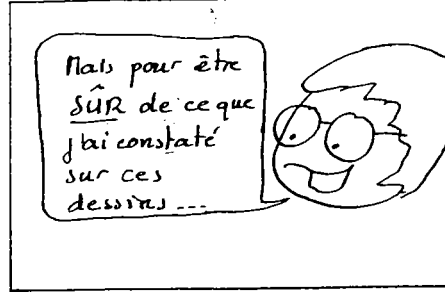 Mais pour être
SÛR de ce que
j'ai constaté
sur ces
dessins...